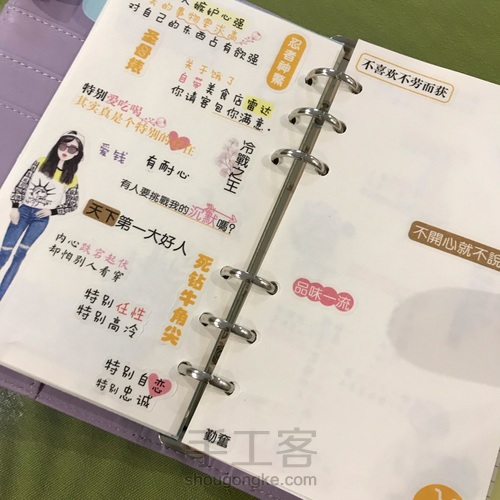 嫉妒心强
对自己的东西占有欲强
圣母婊
忍者神龟
关于饿了
自带美食店雷达
你请客包你满意.
特别爱吃喝
其实真是个特别的存在
爱钱
有耐心
冷戰之王
有人要挑戰我的沉默嗎?
天下第一大好人
内心跌宕起伏
却怕别人看穿
死钻牛角尖
特别任性
特别高冷
特别自恋
特别忠诚
勤奮
不喜欢不劳而获
不開心就不說
品味一流
手工客
shougongke.com